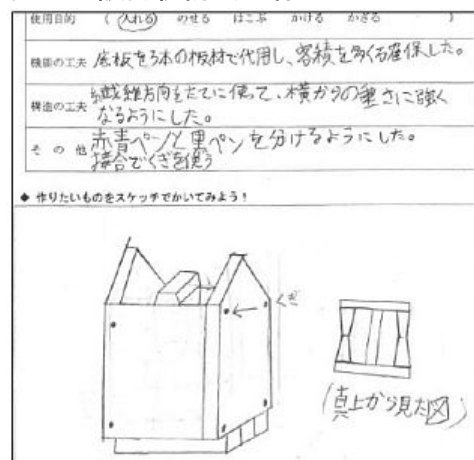 使用目的 ( 入れる のせる はこぶ かける かざる )
機能の工夫 底板を3本の板材で代用し、容積を多く確保した。
構造の工夫 繊維方向をたてに使って、横からの重さに強く
なるようにした。
その他 赤青ペンと黒ペンを分けるようにした。
接合でくぎを使う
◆ 作りたいものをスケッチでかいてみよう!
くぎ
(真上から見た図)